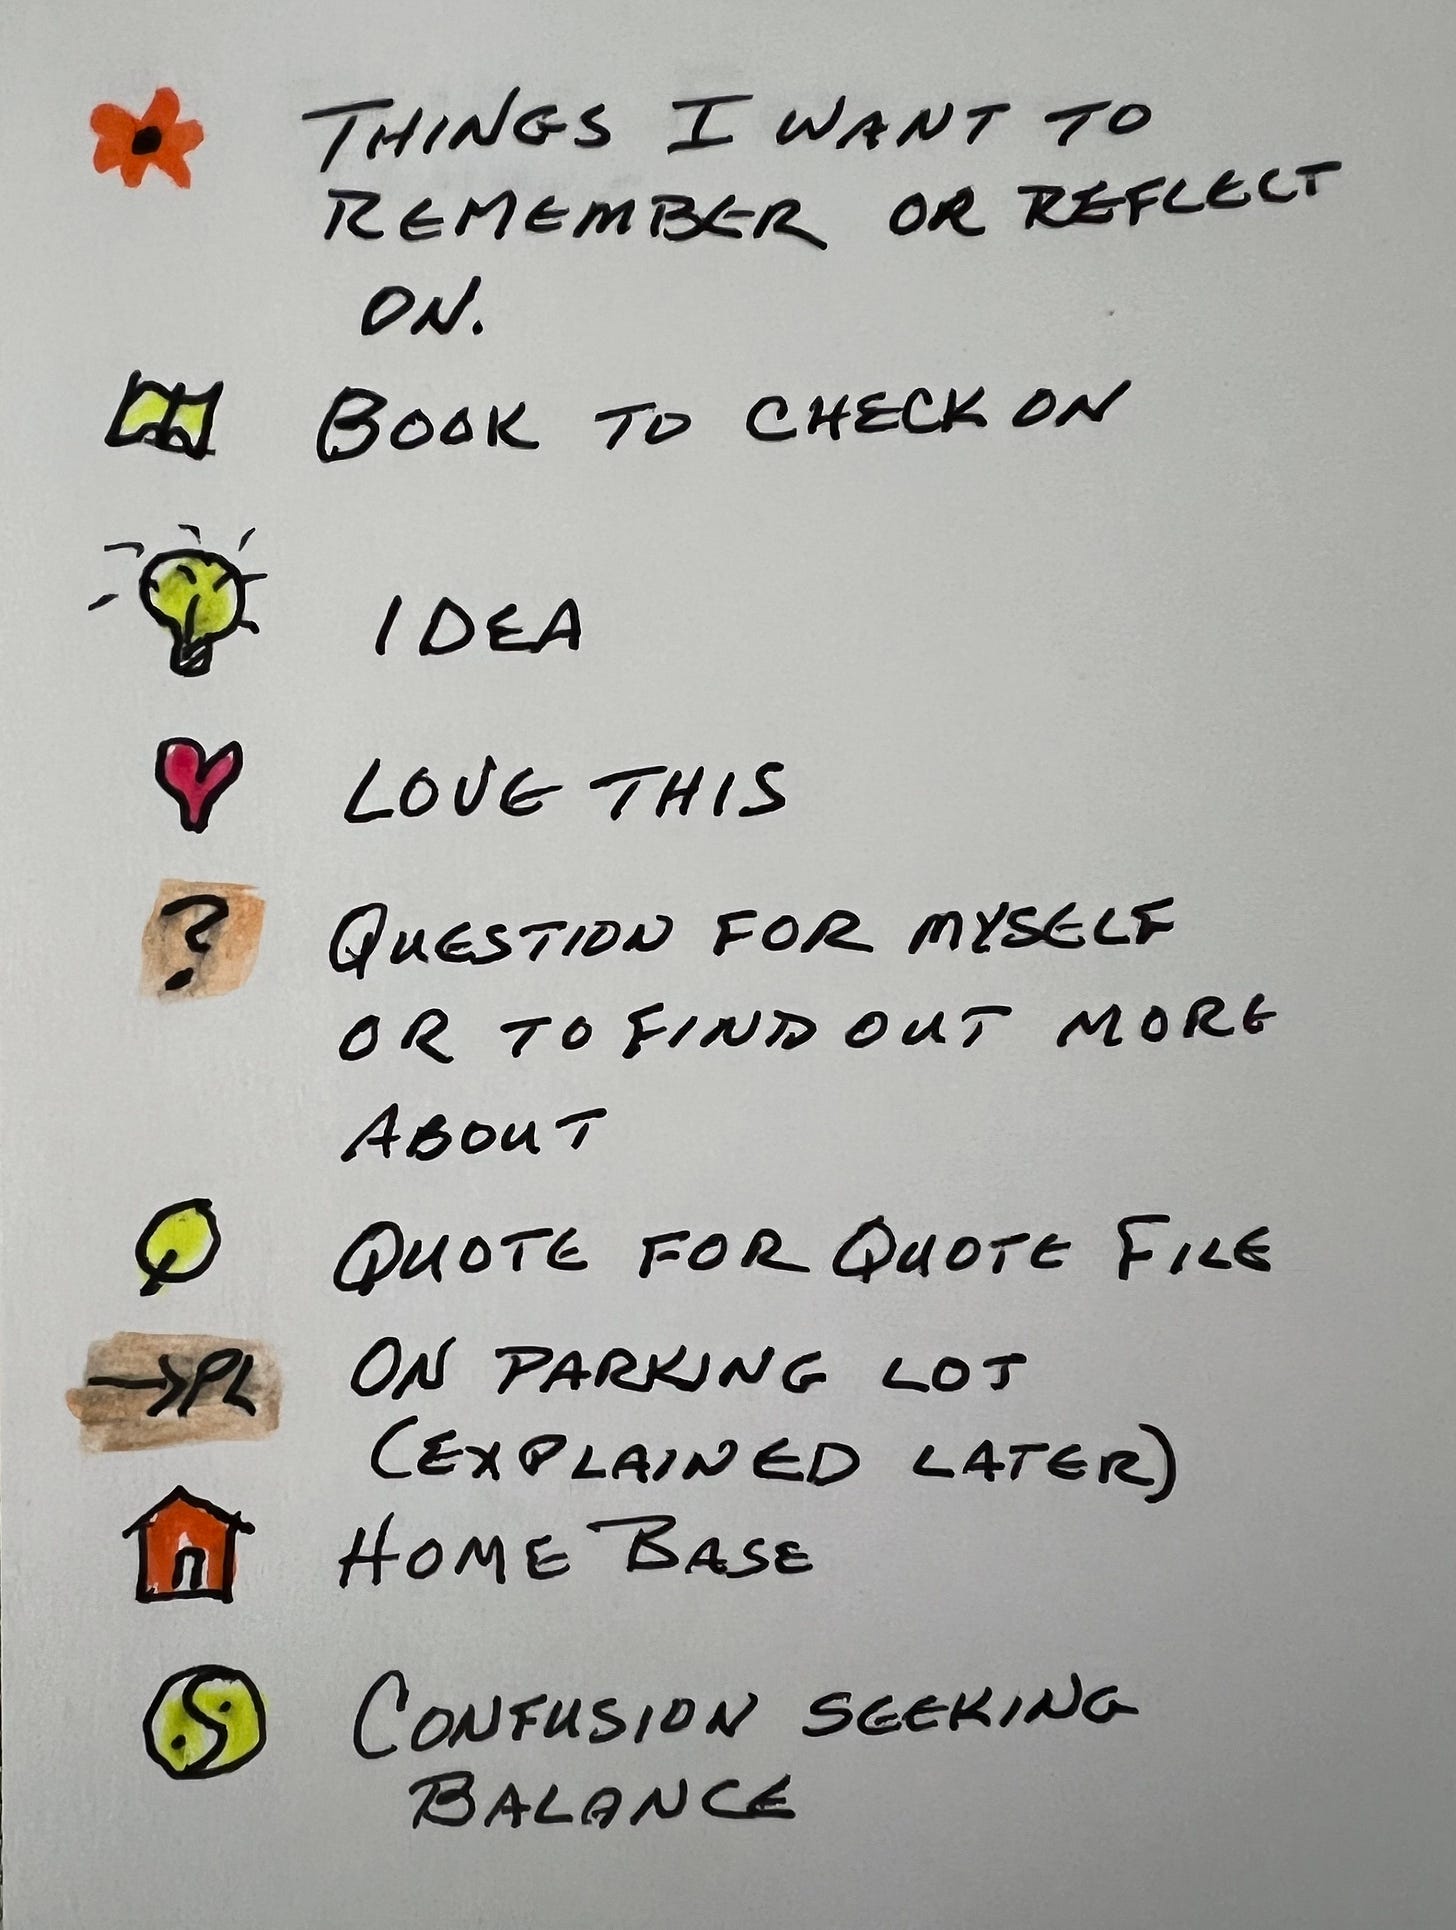 THINGS I WANT TO
REMEMBER OR REFLECT
ON.
BOOK TO CHECK ON
IDEA
LOVE THIS
? QUESTION FOR MYSELF
OR TO FIND OUT MORE
ABOUT
QUOTE FOR QUOTE FILE
→PL ON PARKING LOT
(EXPLAINED LATER)
HOME BASE
CONFUSION SEEKING
BALANCE